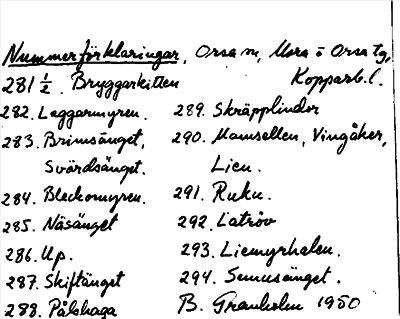 Nummerförklaringar, Orsa m, Mora o Orsa tg,
281 ½. Bryggarkitten Kopparb. l.
282. Laggarmyren. 289. Skräpplindor
283. Brimsänget, 290. Mamsellen, Vingåker,
Svärdsänget. Lien.
284. Bleckomyren. 291. Ruku.
285. Näsänget 292. Latröv
286. Up. 293. Liemyrhalen.
287. Skiftänget 294. Semusänget.
288. Pålshaga B. Granholm 1950